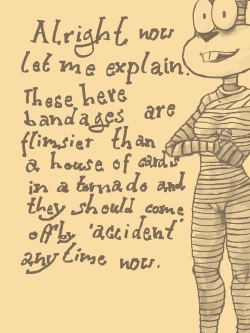 Alright, now
let me explain.
These here
bandages are
flimsier than
a house of cards
in a tornado and
they should come
off by 'accident'
any time now.